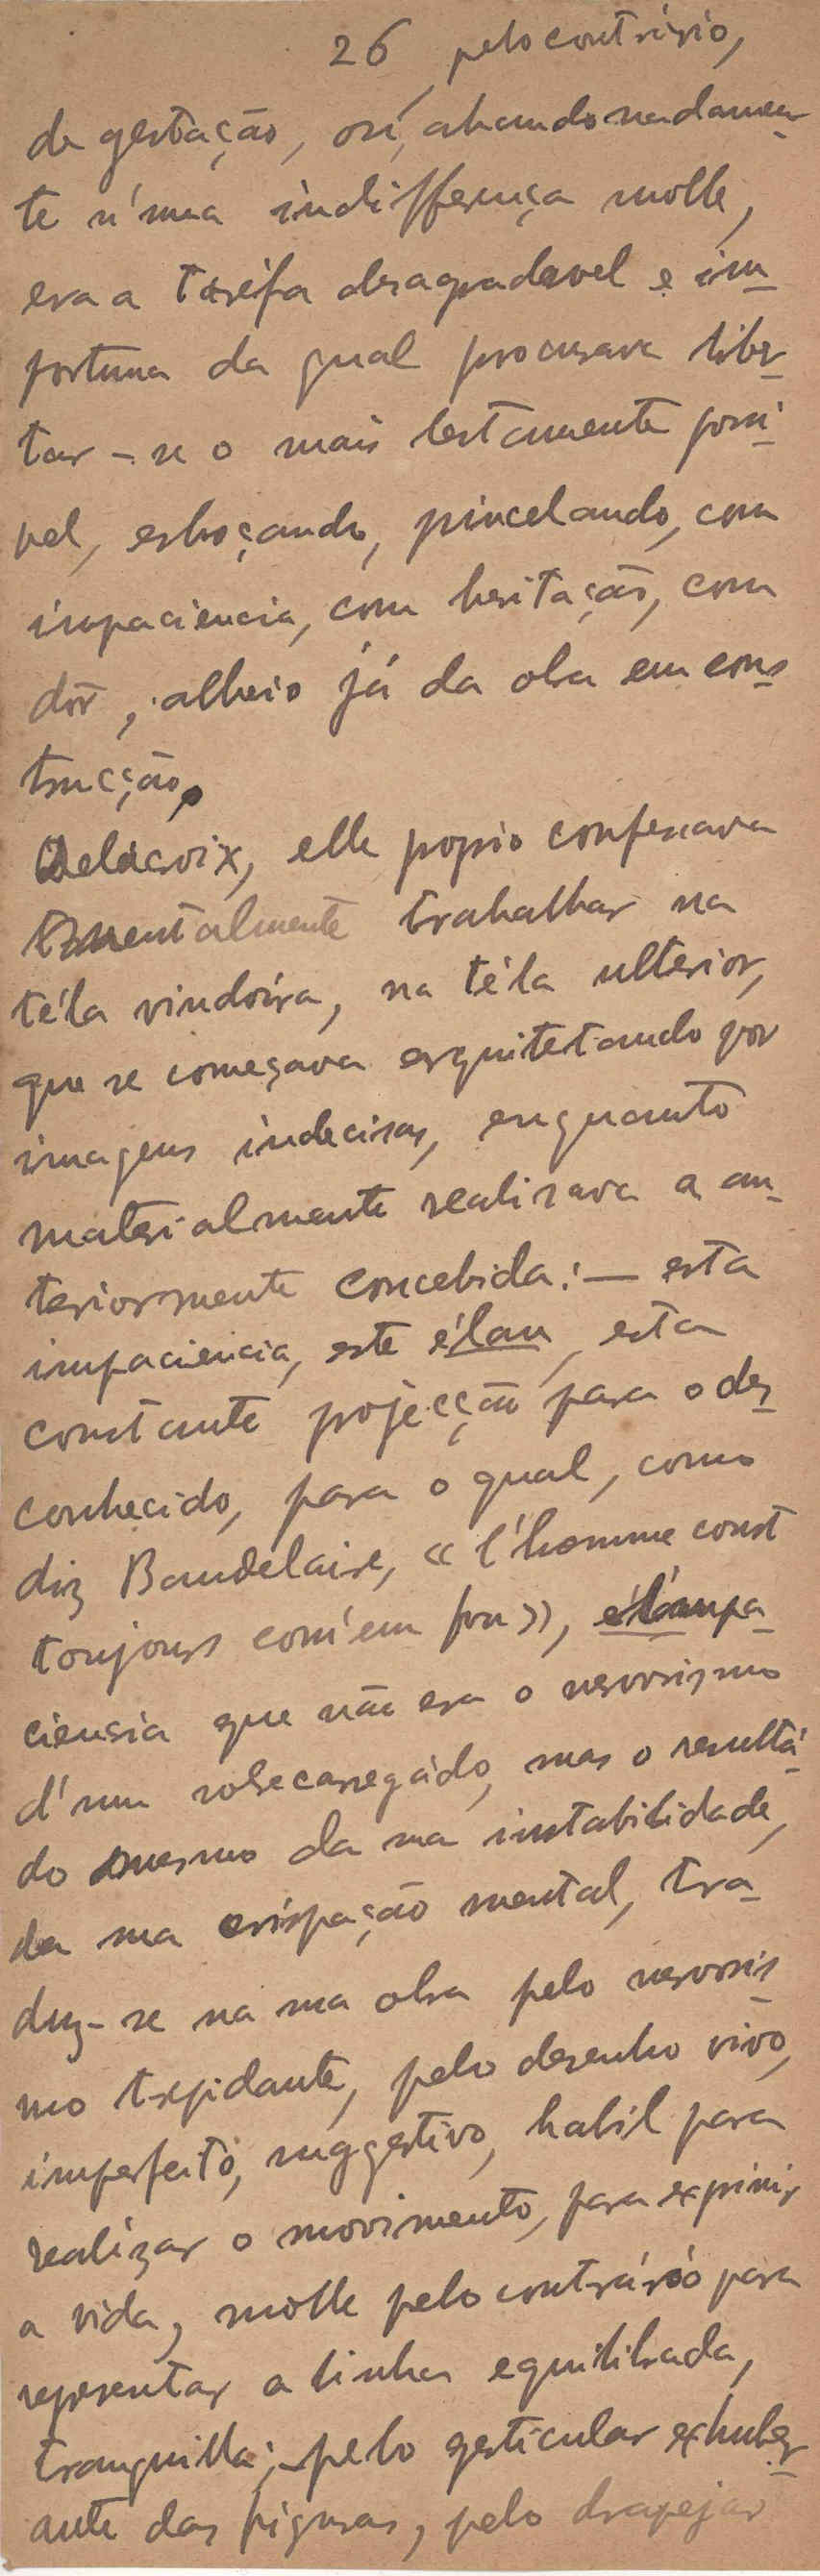 26 pelo contrário,
de gestação, ou, abandonadamen-
te n'uma indifferença molle,
era a tarefa desagradavel e im-
portuna da qual procurava liber-
tar-se o mais lestamente possi-
vel, esboçando, pincelando, com
impaciencia, com hesitação, com
dôr, alheio já da obra em cons-
trucção.
Delacroix, elle proprio confessava
mentalmente trabalhar na
téla vindoira, na téla ulterior,
que se começava arquitetando por
imagens indecisas, enquanto
materialmente realisava a an-
teriormente concebida: — esta
impaciencia, este élan, esta
constante projecção para o des-
conhecido, para o qual, como
diz Baudelaire, «l'homme court
toujours com'em fou», impa-
ciencia que não era o nervosismo
d'um sobrecarregádo, mas o resultá-
do mesmo da sua instabilidade,
da sua crispação mental, tra-
duz-se na sua obra pelo nervosis-
mo trepidante, pelo desenho vivo,
imperfeito, suggestivo, habil para
realizar o movimento, para exprimir
a vida, molle pelo contrário para
representar a linha equilibrada,
tranquilla; pelo gesticular exhuber-
ante das figuras, pelo drapejar